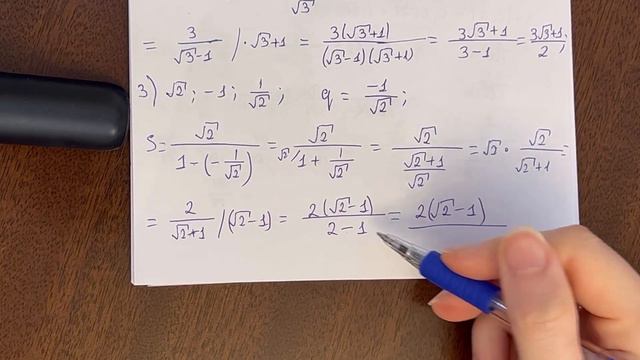 √3
= 3/(√3-1) / · √3+1 = 3(√3+1)/((√3-1)(√3+1)) = (3√3+1)/(3-1) = (3√3+1)/2;
3) √2; -1; 1/√2; q = -1/√2;
S = √2/(1-(-1/√2)) = √2/ √2/(1+1/√2) = √2/((√2+1)/√2) = √2 · √2/(√2+1) =
= 2/(√2+1) / (√2-1) = 2(√2-1)/(2-1) = 2(√2-1)